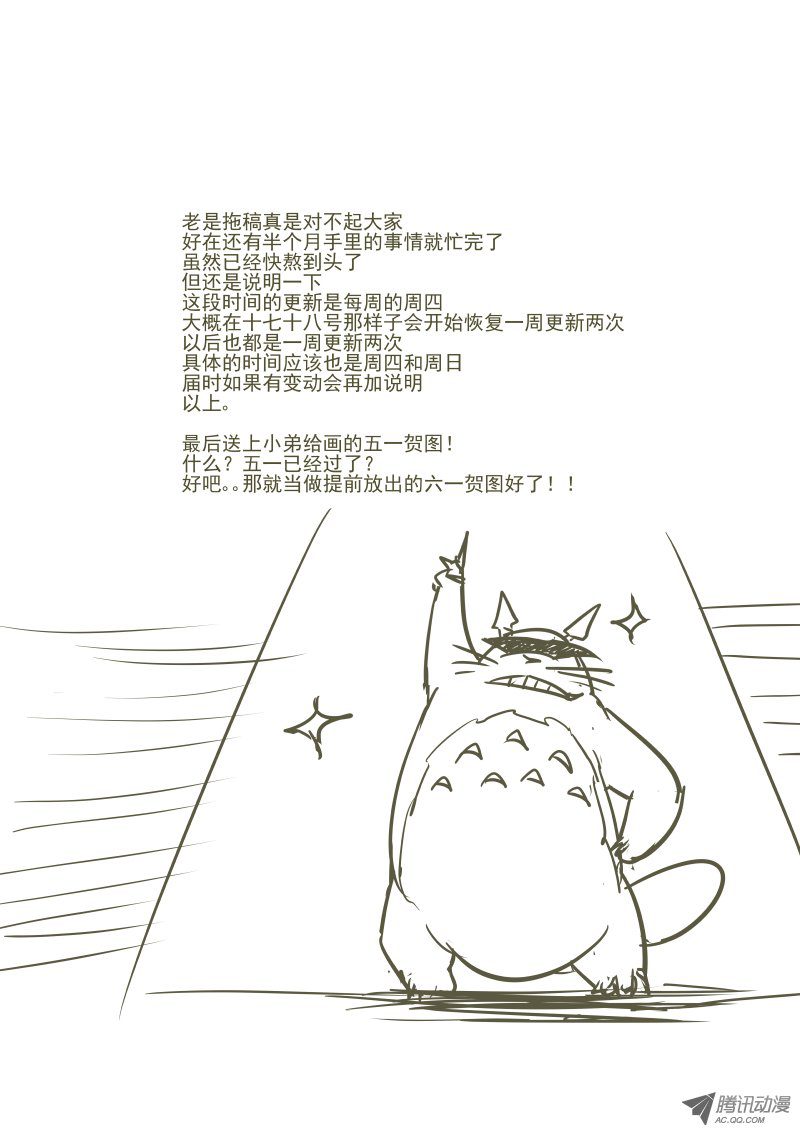 老是拖稿真是对不起大家
好在还有半个月手里的事情就忙完了
虽然已经快熬到头了
但还是说明一下
这段时间的更新是每周的周四
大概在十七十八号那样子会开始恢复一周更新两次
以后也都是一周更新两次
具体的时间应该也是周四和周日
届时如果有变动会再加说明
以上。
最后送上小弟给画的五一贺图！
什么？五一已经过了？
好吧。。那就当做提前放出的六一贺图好了！！
腾讯动漫
AC.QQ.COM